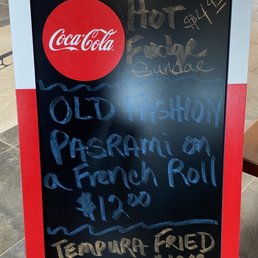 Coca-Cola
Hot
Fudge
Sundae
OLD FASHION
PASRAMi on
a French Roll
$12.00
TEMPURA FRIED